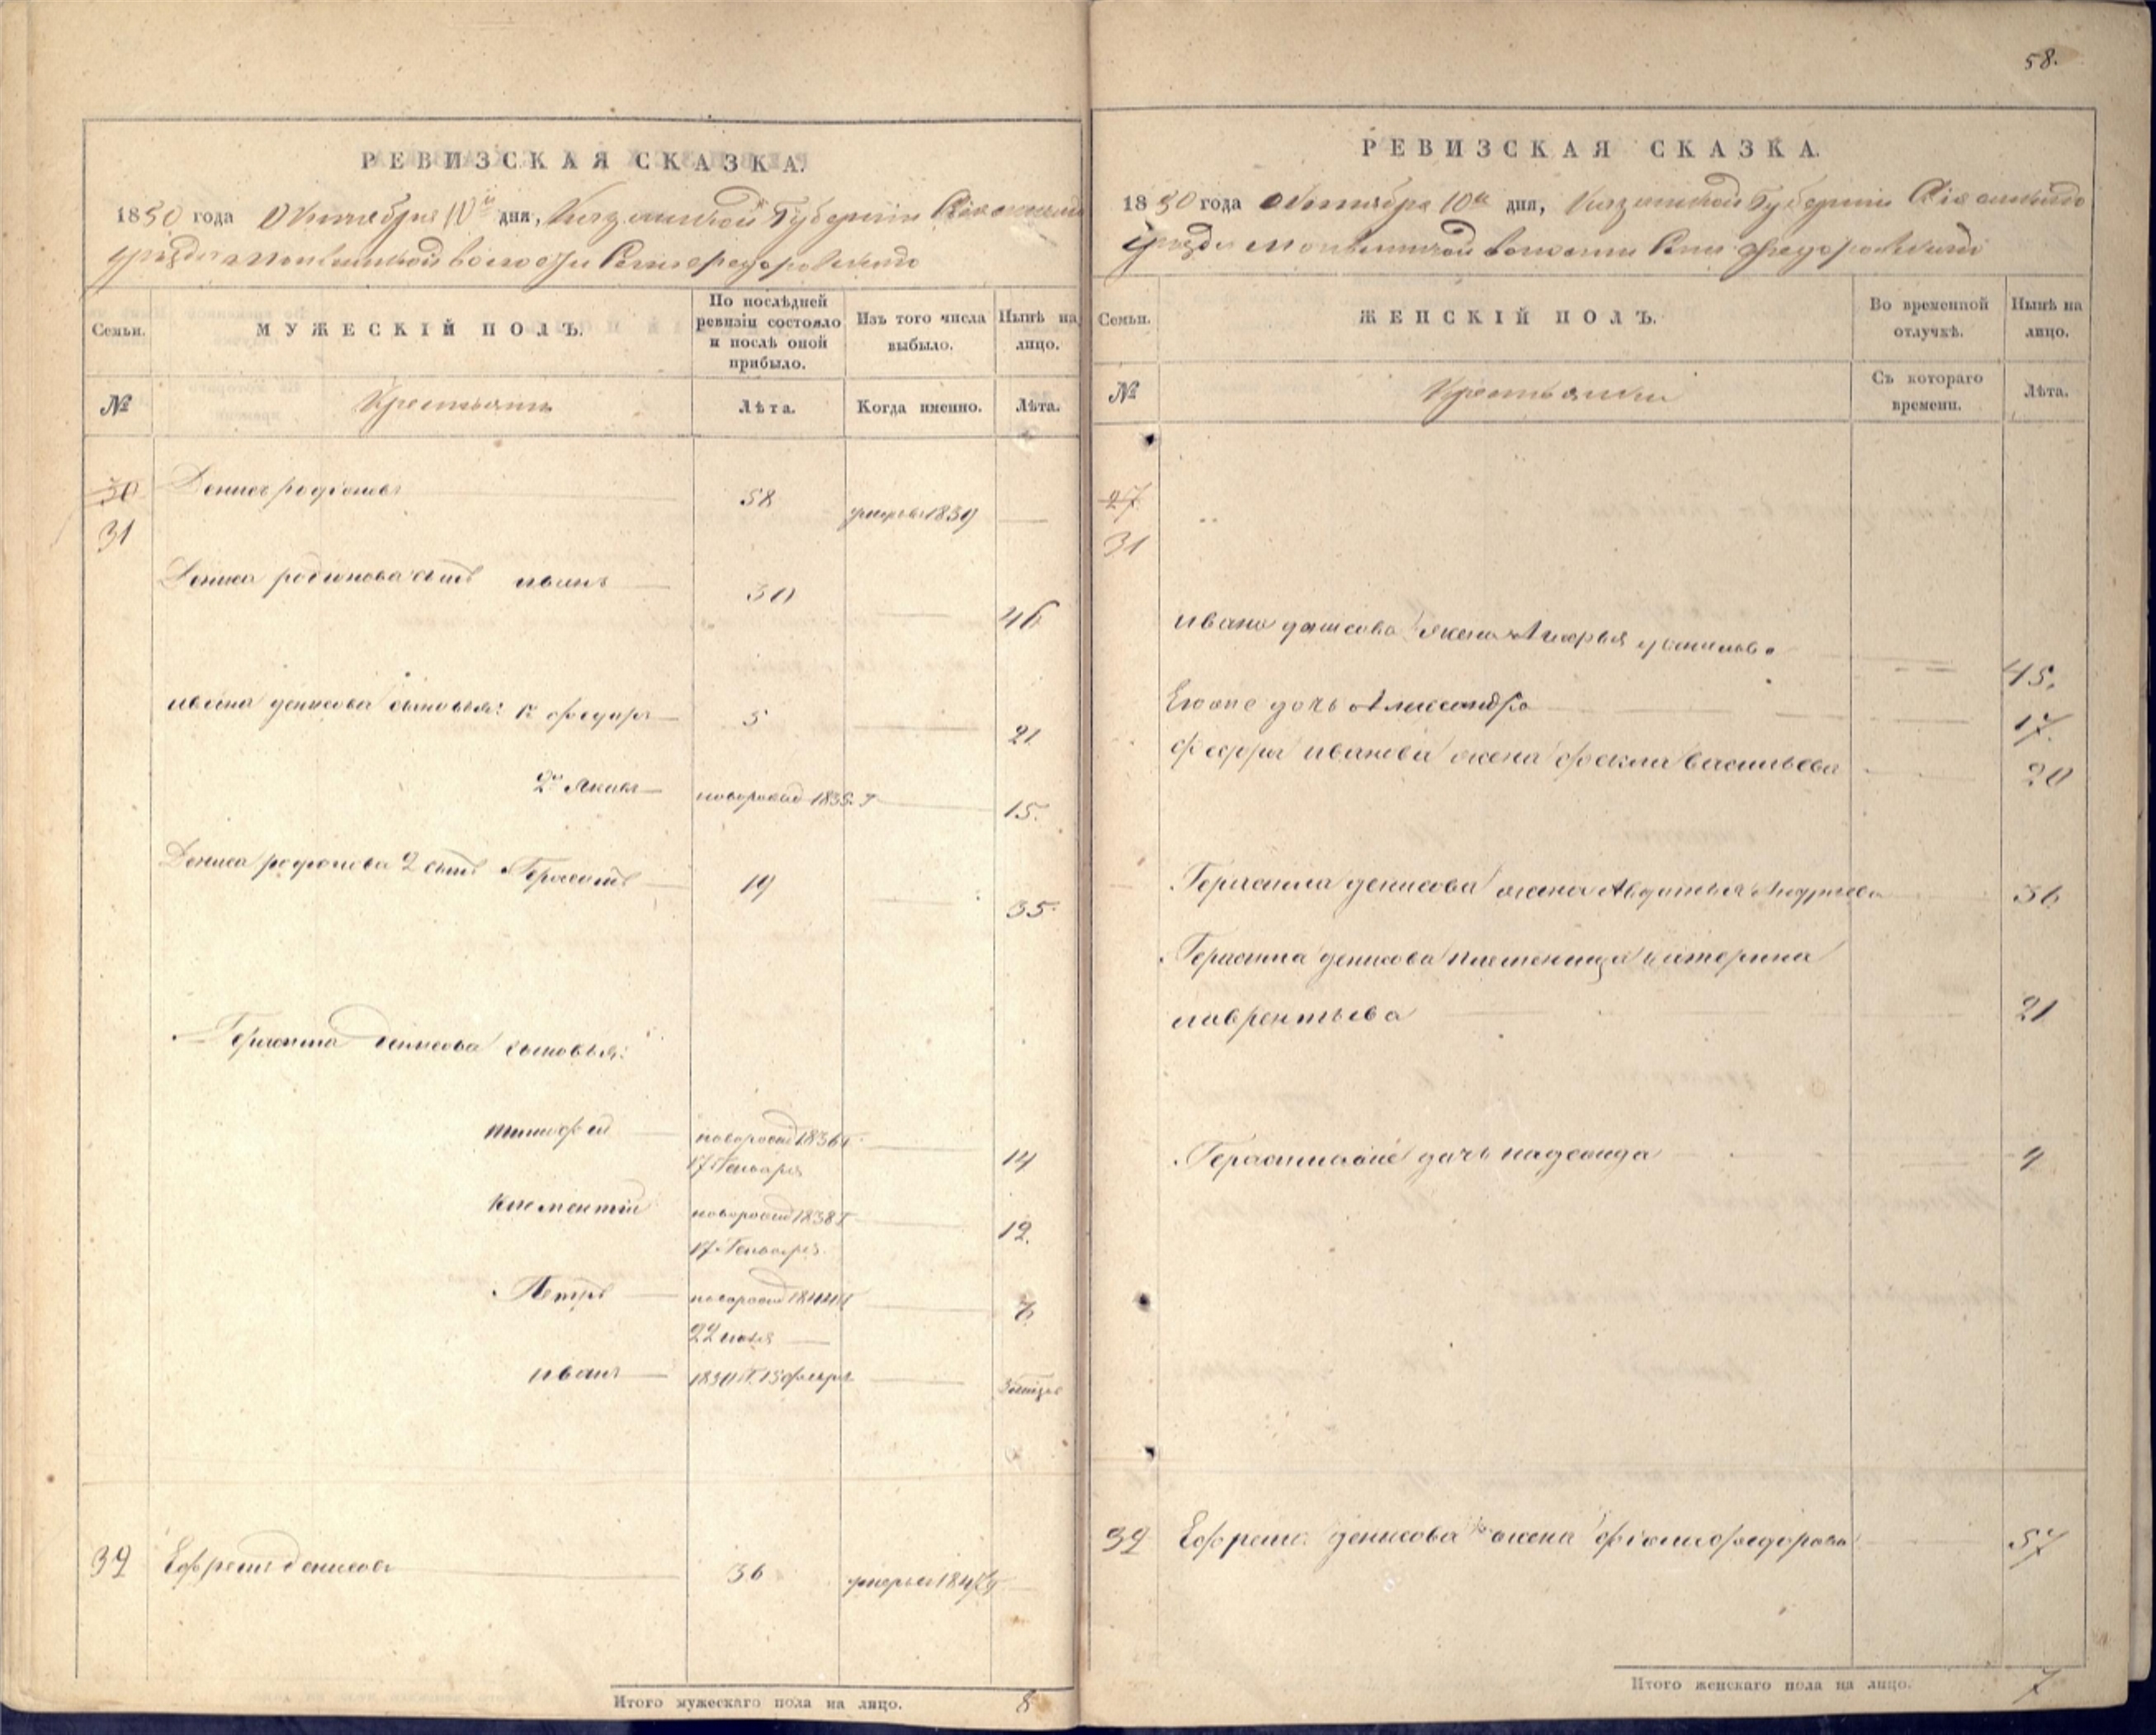 58.
РЕВИЗСКАЯ СКАЗКА.
1850 года Октября 10го дня, Казанской Губернии
уезда волости Села Федоровскаго
Семьи.
МУЖЕСКІЙ ПОЛЪ.
По послѣдней ревизіи состояло и послѣ оной прибыло.
Изъ того числа выбыло.
Нынѣ на лицо.
№
Крестьяне
Лѣта.
Когда именно.
Лѣта.
30
31
Денисъ родіоновъ 58 умеръ 1839
Дениса родіонова сынъ иванъ 30 46
ивана денисова сыновья: 1й федоръ 5 21
2й Яковъ новорожд 1835 г 15.
Дениса родіонова 2 сынъ Герасимъ 19 35.
Герасима денисова сыновья:
тимофей новорожд 1836 г 14
17 Генваря
клементій новорожд 1838 г 12.
17 Генваря
Петръ новорожд 1844 г
22 июня
иванъ 1850 г. 15 февра
32 Ефремъ денисовъ 36 умеръ
Итого мужескаго пола на лицо. 8
РЕВИЗСКАЯ СКАЗКА.
1850 года Октября 10го дня, Казанской Губерніи
уезда волости Села Федоровскаго
Семьи.
ЖЕНСКІЙ ПОЛЪ.
Во временной отлучкѣ.
Нынѣ на лицо.
№
Крестьянки
Съ котораго времени.
Лѣта.
27
31
ивана денисова жена Марья 45.
Его оне дочь Александра 17.
федора иванова жена фекла васильева 20
Герасима денисова жена Авдотья Андреева 36
Герасима денисова племеница катерина
лаврентьева 21
Герасима оне дочь надежда
32 Ефрема денисова жена федорова 57
Итого женскаго пола на лицо. 7